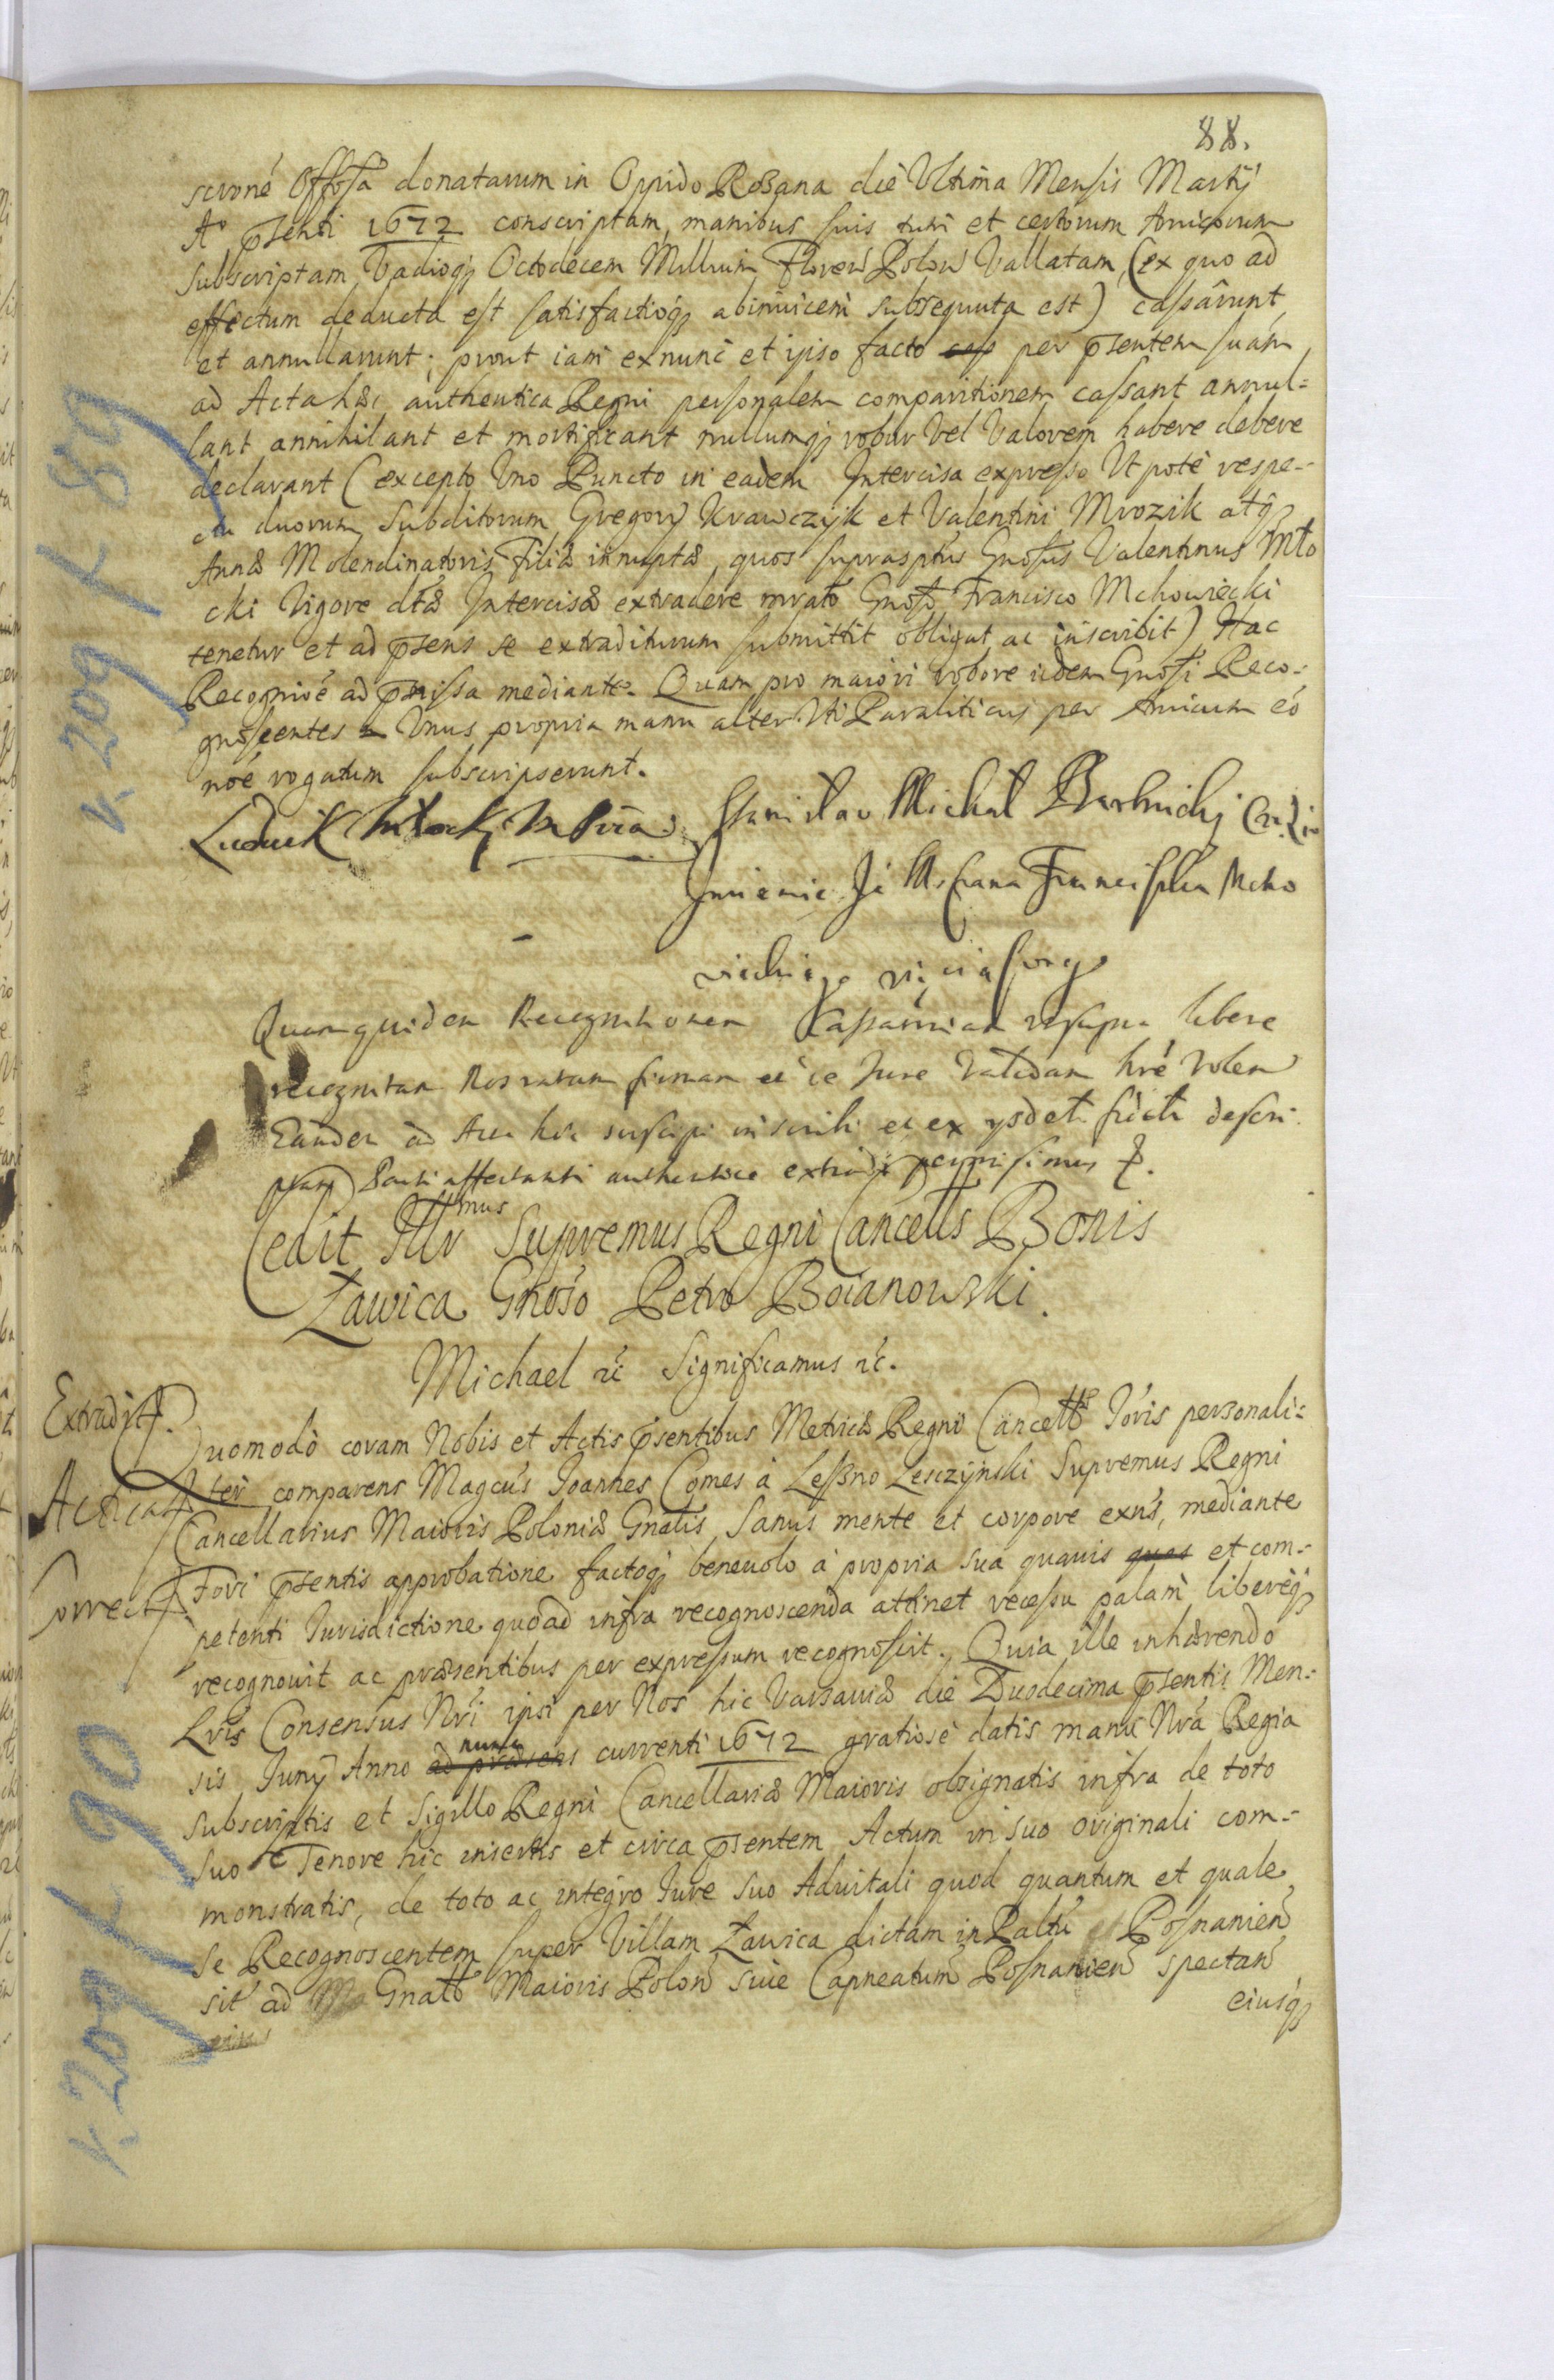 88.
scrone Offosa donatarum in Oppido Rożana die Ultima Mensis Martij
A° pñsenti 1672 conscriptam, manibus suis tum et certorum Amicorum
subscriptam Vadioq; Octodecem Millium Floren Polon Vallatam, (ex quo ad
effectum deducta est satisfactioq; abinvicem subsequuta est) cassârunt
et annullarunt; prout iam exnunc et ipso facto per pñsentem suam
ad Acta hæc authentica Regni personalem comparitionem cassant annul-
lant annihilant et mortificant nullumq; robur Vel Valorem habere debere
declarant (excepto Uno Puncto in eadem Intercisa expresso Utpote respe-
ctu duorum Subditorum Gregorij Krawczyk et Valentini Mrozik atq;
Annæ Molendinatoris filiæ innuptæ, quos suprasptus Gnosus Valentinus Mło
cki Vigore dtæ Intercisæ extradere mrato Gnoso Francisco Mchowiecki
tenetur et ad pñsens se extraditurum submittit obligat ac inscribit) Hac
Recognioe ad pmissa mediante. Quam pro maiori robore iidem Gnosi Reco-
gnoscentes Unus propria manu alter Uti Paraliticus per Amicum eo
noe rogatum subscripserunt.
Ludwik Młocki Mpria Stanisław Michał
Imieniem Je Mści Pana Franciszka Mcho
wieckiego
Quamquidem Recognitionem Cassatoriam ut supra libere
recognitam Nos ratam firmam et de Jure Validam hre volen
Eandem ad Acta hæc suscipi inscribi et ex ysdet fideli descri
ptam Parti affectanti authentice extradi permisimus &.
Cedit Illrmus Supremus Regni Cancells Bonis
Ławica Gnoso Petro Boianowski.
Michael &c Significamus &c.
Extradit.
Quomodo coram Nobis et Actis pñsentibus Metricæ Regni Cancell Ioris personali-
Acticat
ter comparens Magcus Ioannes Comes à Leßno Lesczÿnski Supremus Regni
Cancellarius Maioris Poloniæ Gnalis Sanus mente et corpore exns, mediante
Correct
Fori pñsentis approbatione factoq; beneuolo à propria sua quauis quas et com-
petenti Jurisdictione quoad infra recognoscenda attinet recessu palam liberèq;
recognouit ac præsentibus per expressum recognoscit. Quia ille inhærendo
Lris Consensus Nri ipsi per Nos hic Varsauiæ die Duodecima pñsentis Men-
sis Juny Anno ad præsens nunc currenti 1672 gratiosè datis manu Nra Regia
subscriptis et Sigillo Regni Cancellariæ Maioris obsignatis infra de toto
suo Tenore hic insertis et circa pñsentem Actum in suo originali com-
monstratis, de toto ac integro Jure suo Aduitali quod quantum et quale
se Recognoscentem super Villam Ławica dictam in Paltu Posnanien
sit ad Gnatt Maioris Polon siue Capneatum Posnanien spectan
eiusq;
K 209 f 89
K 209 f 90